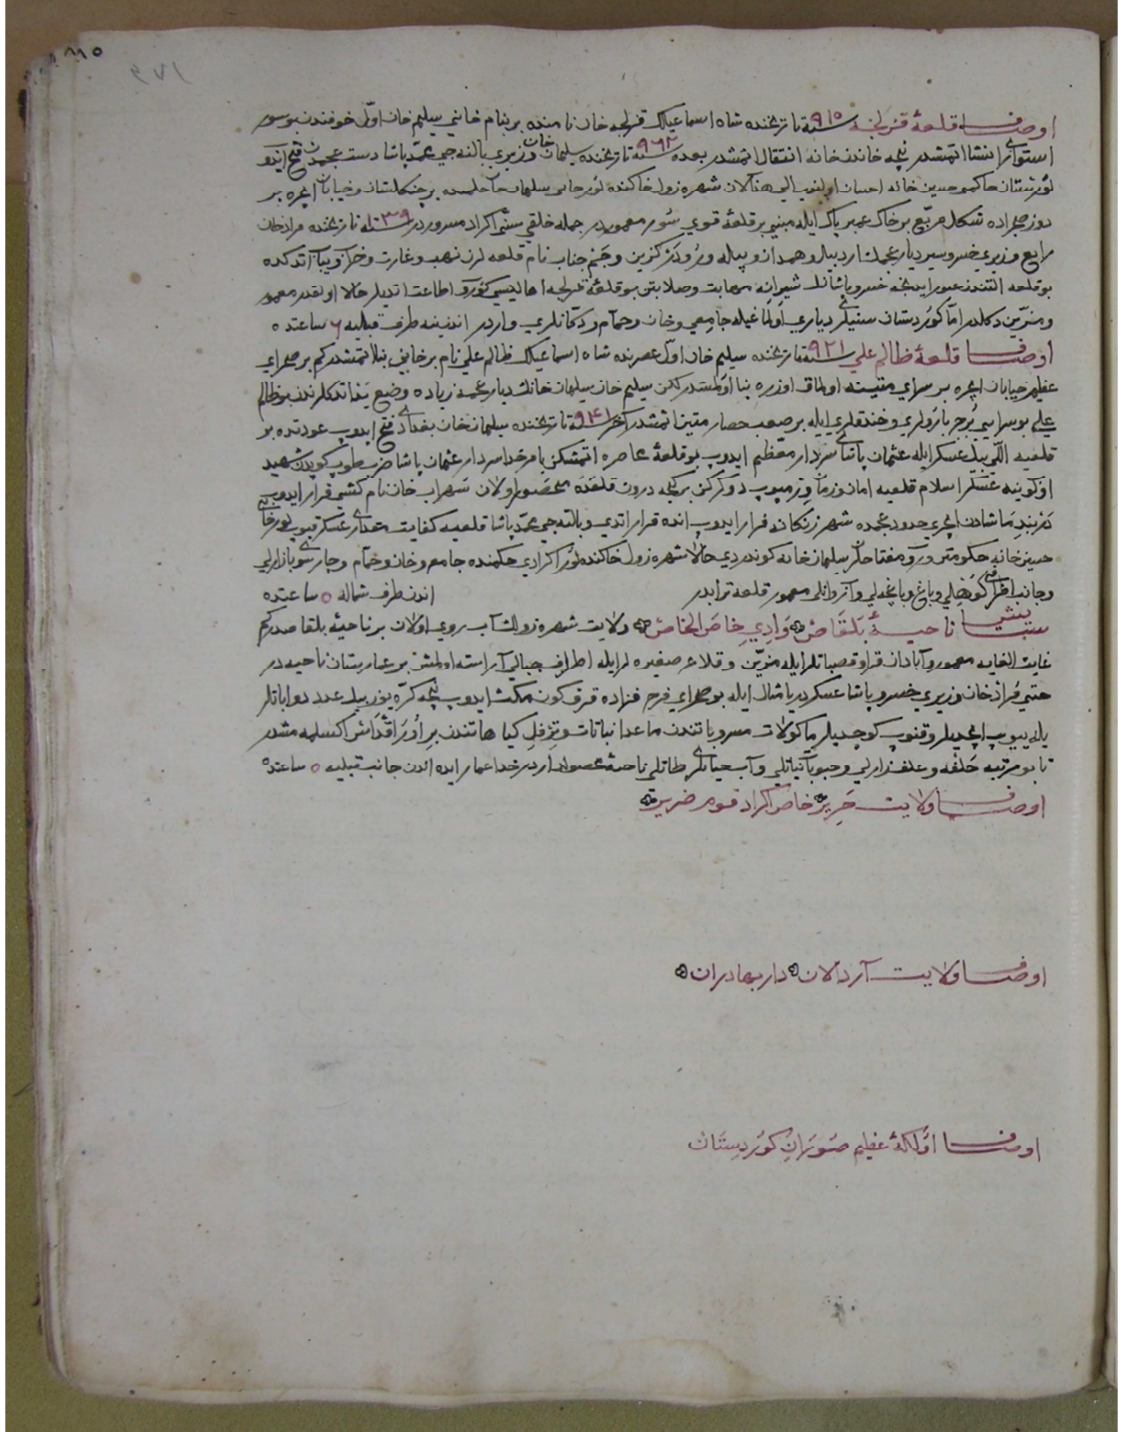 ١١٥
١٧٤
اوصاف قلعۀ قزلجه ٩١٥ سنه تاریخنده شاه اسماعیلك قزلجه خان نامنده بر بنام خانی سلیم خان اوّل خوفندن بو سور
استواری انشا اتمشدر نیچه خاندن خانه انتقال اتمشدر بعده سنه ٩٦٢ تاریخنده سلیمان خان وزیری بالته جی محمد پاشا دست عجمدن فتح ایدوب
حاکمو حسین خانه احسان اولنوب الی هذا الان شهره زول خاکنده سلیمان خیابان ایچره بر
دوز صحراده شکل مربع بر خاك عمبر پاك ایله مبنی بر قلعۀ قوی سور معموردر جمله خلقی سنّی اکراد سنه ١٠٣٩ تاریخنده مراد خان
رابع وزیری خسرو دیار عجمك اردبیل و همدان و پیله ور و درکزین و جناب نام قلعه لرن نهب و غارت و خراب و یباب اتدکده
بو قلعه التندن عبور ایدنجه خسرو پاشانك شیرانه مهابت و صلابتن بو قلعۀ قزلجه اهالیسی کوروب اطاعت اتدیلر حالا اولقدر معمور
و مزین دکلدر امّا کوردستان دیاری اولماغیله جامعی و خان و حمام و دکانلری واردر اندن ینه طرف قبلیه ٦ ساعتده
اوصاف قلعۀ ظالم علی ٩٢١ سنه تاریخنده سلیم خان اوّل عصرنده شاه اسماعیلك ظالم علی نام بر خانی بنا اتمشدر کیم بر صحرای
عظیم خیابان ایچره بر سرای متینه اولماق اوزره بنا اولمشدر لکن سلیم خان سلیمان خانك دیار عجمه زیاده وضع ید اتدکلرندن بو ظالم
علی بو سرایی برج بارولری و خندقلری ایله بر صعب حصار متین اتمشدر آخر ٩٤١ سنه تاریخنده سلیمان خان بغدادی فتح ایدوب عودتده بو
قلعیه اللی بیك عسکر ایله عثمان پاشای سردار معظم ایدوب بو قلعۀ محاصره اتمشکن بامر خدا سردار عثمان پاشا ضرب طوب شهید
اولکونینه عسکر اسلام قلعیه امان و زمان ویرمیوب دوکرکن بر کیجه درون قلعده محصور اولان سهراب خان نام کشی فرار ایدوب
دربند ماشادن ایچری حدود عجمده شهر زنکانه فرار ایدوب انده قرار اتدی و بالته جی محمد پاشا قلعیه کفایت مقداری عسکر قیوب
حسین خانه حکومتن ویروب مفتاحلرن سلیمان خانه کوندردی حالا شهره زول خاکنده اکرادی حکمنده جامع و خان و حمام و چارسوی بازارلی
و جانب اطرافی باغ و باغچه لی معمور قلعۀ ترابدر اندن طرف شماله ٥ ساعتده
ستایش ناحیۀ بلقاص وادی خاص الخاص ولایت شهره زولك آب روی اولان بر ناحیۀ بلقاصدر کیم
غایت الغایه معمور و آبادان قرا و قصباتلر ایله مزین و قلاع صغیره لر ایله اطراف جبالی آراسته اولمش بر عمارستان ناحیه در
حتی مراد خان وزیری خسرو پاشا عسکر دریا مثال ایله بو صحرای فرح فزاده قرق کون مکث ایدوب نیچه کره یوز بیك عدد دواباتلر
یایلیوب ایچدیلر و قونوب کوچدیلر ماکولات مشروباتندن ماعدا نباتات کیاهاتندن اکسلمه مشدر
تا بو مرتبه حلفه و علفزارلی و حبوباتلی و آب حیاتلی ناحیۀ محصولداردر خدا عمار ایده اندن جانب قبلیه ٥ ساعتده
اوصاف ولایت حریر خاص اکراد قوم ضریر
اوصاف ولایت آردالان دار بهادران
اوصاف اولکۀ عظیم صوران کوردستان